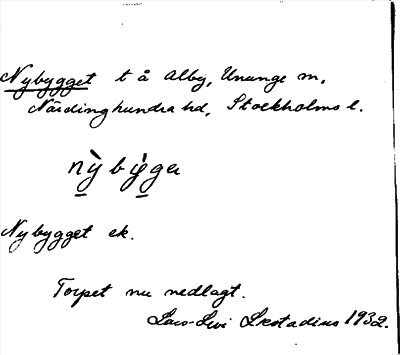 Nybygget t å Alby, Ununge sn,
Närdinghundra hd, Stockholms l.
nỳbỳga
Nybygget ek.
Torpet nu nedlagt.
Lars-Levi Læstadius 1932.